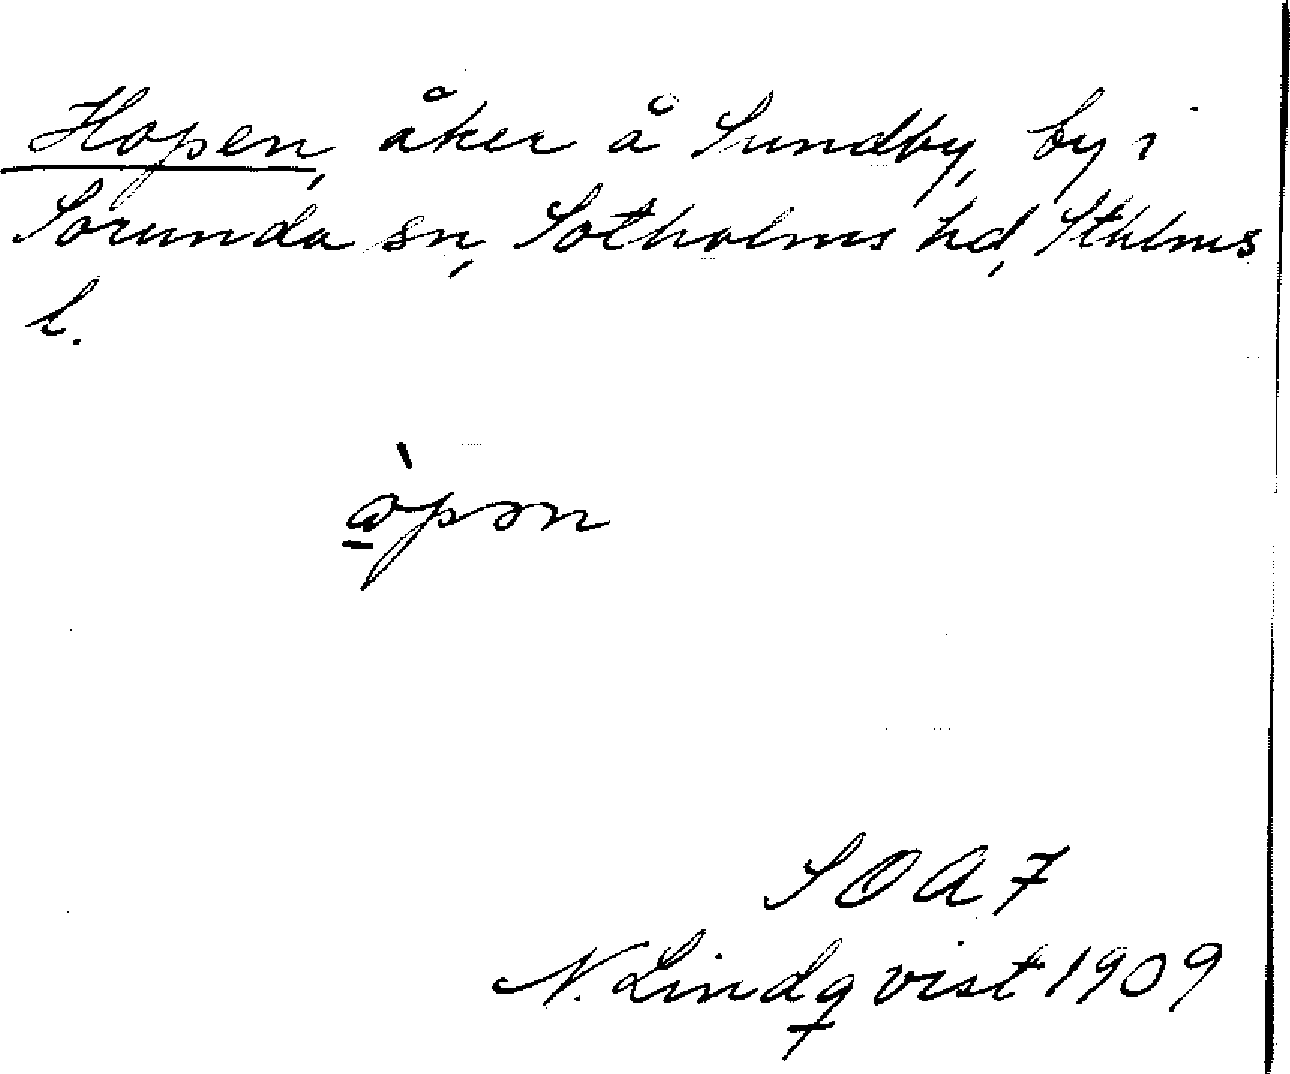 Hopen, åker å Sundby, by i
Sorunda sn, Sotholms hd, Sthlms
l.
òpən
SOA 7
N. Lindqvist 1909